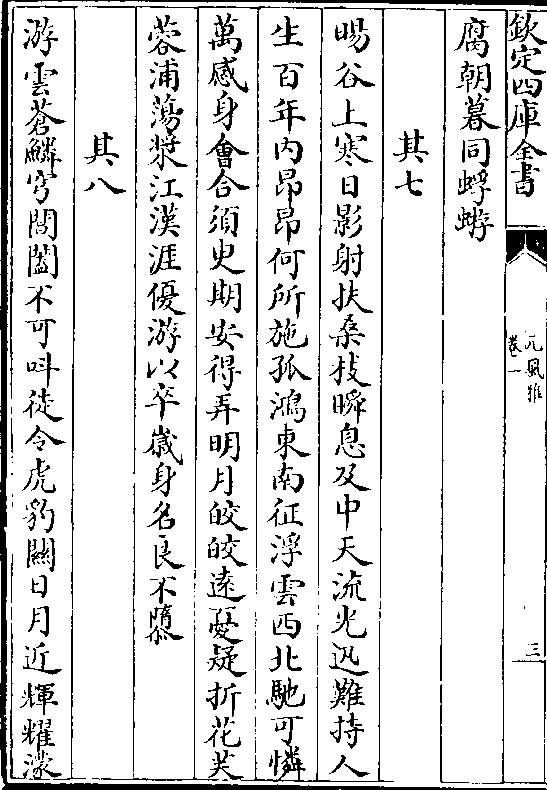 欽定四庫全書
元風雅
卷一
三
腐朝暮同蜉蝣
其七
暘谷上寒日影射扶桑技瞬息及中天流光迅難持人
生百年内昂昂何所施孤鴻東南征浮雲西北馳可憐
萬感身會合須臾期安得弄明月皎皎遠憂疑折花芙
蓉浦蕩槳江漢涯優游以卒歲身名良不隳
其八
游雲蒼鱗穹閶闔不可叫徒令虎豹關日月近輝耀濛